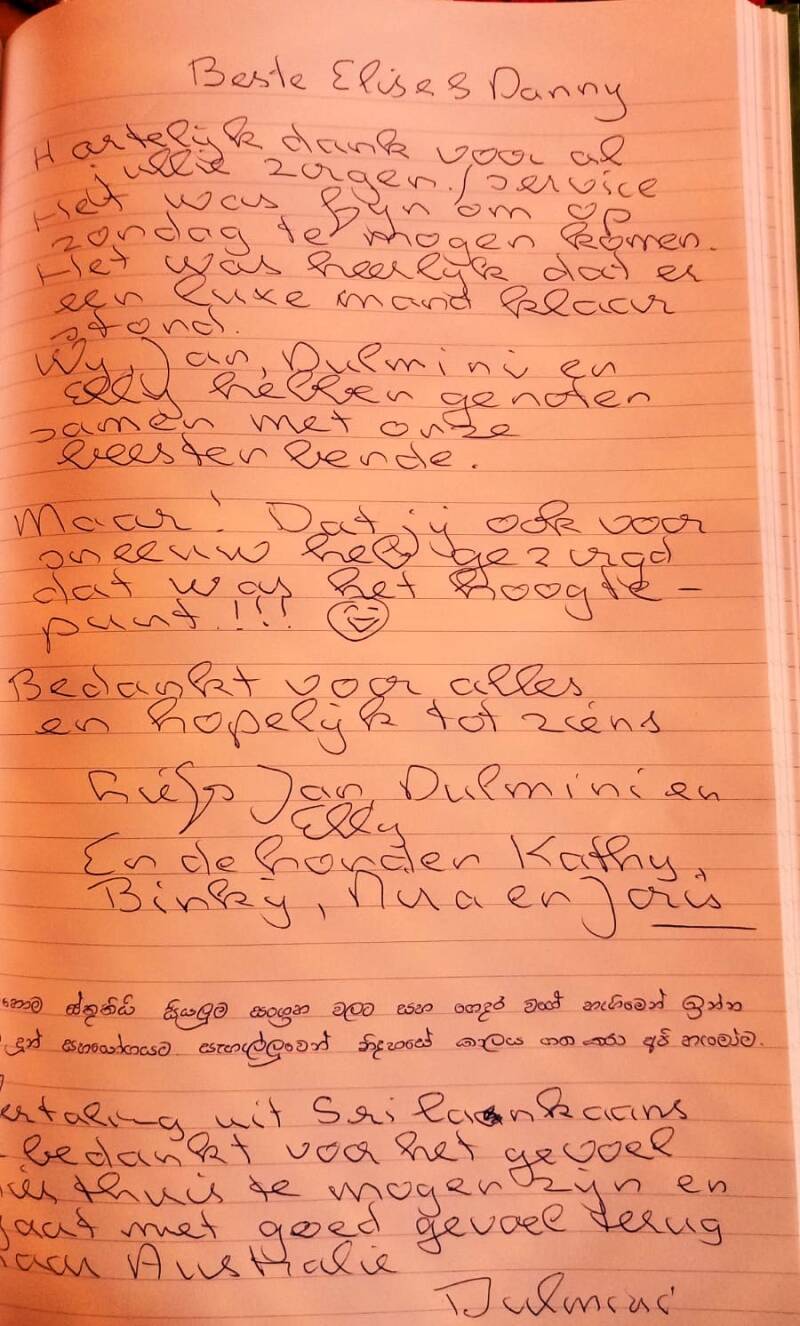 Beste Elise & Danny
Hartelijk dank voor al
jullie zorgen / service
Het was fijn om op
zondag te mogen komen.
Het was heerlijk dat er
een luxe mand klaar
stond.
Wij, Jan, Dulmini en
Elly hebben genoten
samen met onze
beestenbende.
Maar! Dat jij ook voor
sneeuw heb gezorgd
dat was het hoogte-
punt!!!
Bedankt voor alles
en hopelijk tot ziens
Liefs Jan, Dulmini en
Elly
En de honden Kathy,
Binky, en Joris
ස්තූතියි සියලුම සංග්‍රහ වලට සහ ගෙදර වගේ හැඟීමෙන් ඉන්න
දුන් සහයෝගයට. සැහැල්ලුවෙන් නිදහසේ කාලය ගත කරා අපි හැමෝම.
ertaling uit Sri laankaans
bedankt voor het gevoel
thuis te mogen zijn en
gaat met goed gevoel terug
naar Australie
Dulmini